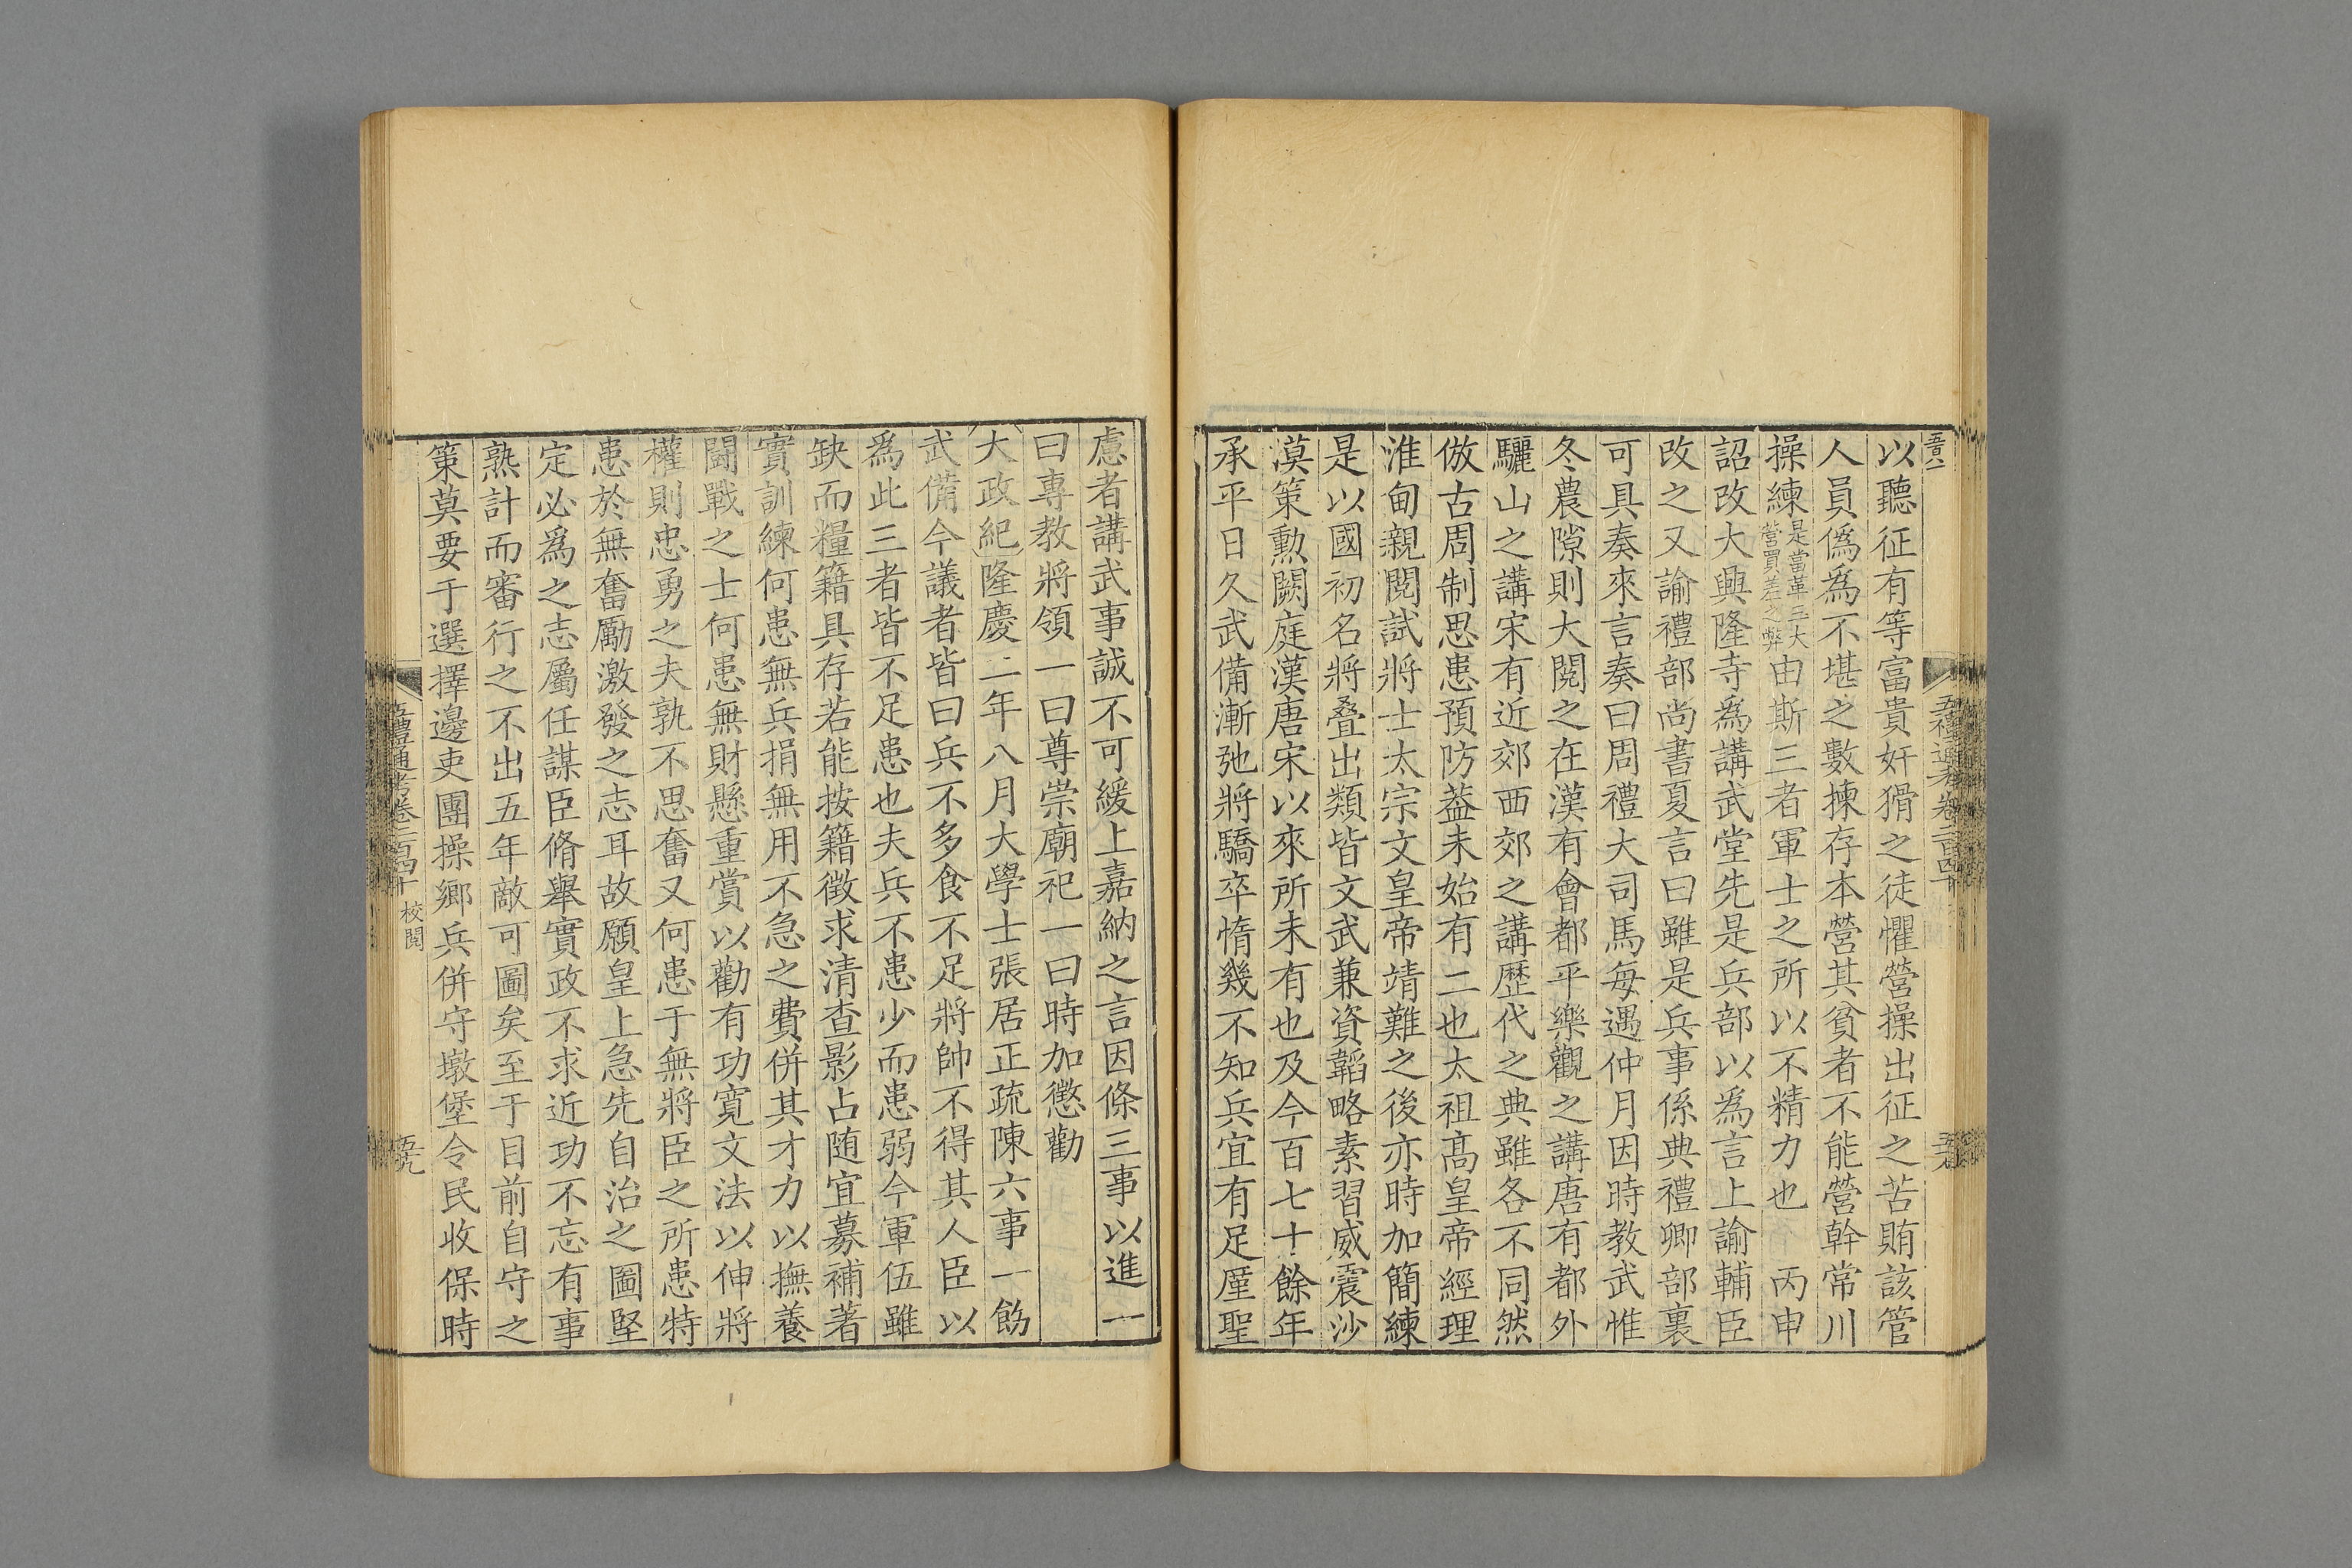 五禮通考卷二百四十
以聽征有等富貴奸猾之徒懼營操出征之苦賄該管
人員僞爲不堪之數揀存本營其貧者不能營幹常川
操練是當革三大營買差之弊由斯三者軍士之所以不精力也 丙申
詔改大興隆寺爲講武堂先是兵部以爲言上諭輔臣
改之又諭禮部尚書夏言曰雖是兵事係典禮卿部裏
可具奏來言奏曰周禮大司馬每遇仲月因時教武惟
冬農隙則大閱之在漢有會都平樂觀之講唐有都外
驪山之講宋有近郊西郊之講歷代之典雖各不同然
倣古周制思患預防葢未始有二也太祖高皇帝經理
淮甸親閱試將士太宗文皇帝靖難之後亦時加簡練
是以國初名將叠出類皆文武兼資韜略素習威震沙
漠策勳闕庭漢唐宋以來所未有也及今百七十餘年
承平日久武備漸弛將驕卒惰幾不知兵宜有足厪聖
慮者講武事誠不可緩上嘉納之言因條三事以進一
曰專教將領一曰尊崇廟祀一曰時加懲勸
大政紀隆慶二年八月大學士張居正疏陳六事一飭
武備今議者皆曰兵不多食不足將帥不得其人臣以
爲此三者皆不足患也夫兵不患少而患弱今軍伍雖
缺而糧籍具存若能按籍徵求清查影占随宜募補著
實訓練何患無兵捐無用不急之費併其才力以撫養
鬬戰之士何患無財懸重賞以勸有功寬文法以伸將
權則忠勇之夫孰不思奮又何患于無將臣之所患特
患於無奮勵激發之志耳故願皇上急先自治之圖堅
定必爲之志屬任謀臣脩舉實政不求近功不忘有事
熟計而審行之不出五年敵可圖矣至于目前自守之
策莫要于選擇邊吏團操鄉兵併守墩堡令民收保時
五禮通考卷二百四十 校閱 五九